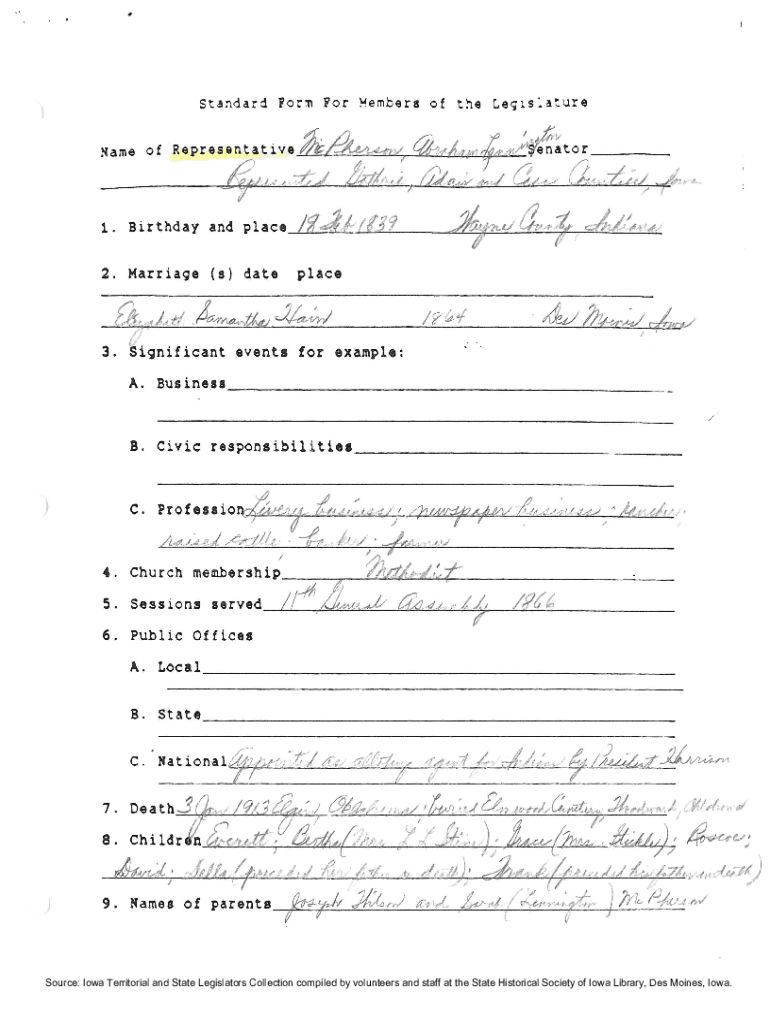 Standard Form For Members of the Legislature
Name of Representative McPherson, Abraham Lennington Senator
Represented Guthrie, Adair and Cass Counties, Iowa
1. Birthday and place 18 Feb 1839 Wayne County, Indiana
2. Marriage (s) date place
Elizabeth Samantha Hain 1864 Des Moines, Iowa
3. Significant events for example:
A. Business
B. Civic responsibilities
C. Profession Livery business; newspaper business; rancher;
raised cattle; banker; farmer
4. Church membership Methodist
5. Sessions served 11th General Assembly 1866
6. Public Offices
A. Local
B. State
C. National Appointed as alloting agent for Indian by President Harrison
7. Death 3 Jan 1913 Elgin, Oklahoma; buried Elmwood Cemetery, Woodward, Oklahoma
8. Children Everett; Bertha (Mrs. L L Stine); Grace (Mrs. Stickle); Roscoe;
David; Della (preceded her father in death); Frank (preceded his father in death)
9. Names of parents Joseph Wilson and Sarah (Lennington) McPherson
Source: Iowa Territorial and State Legislators Collection compiled by volunteers and staff at the State Historical Society of Iowa Library, Des Moines, Iowa.